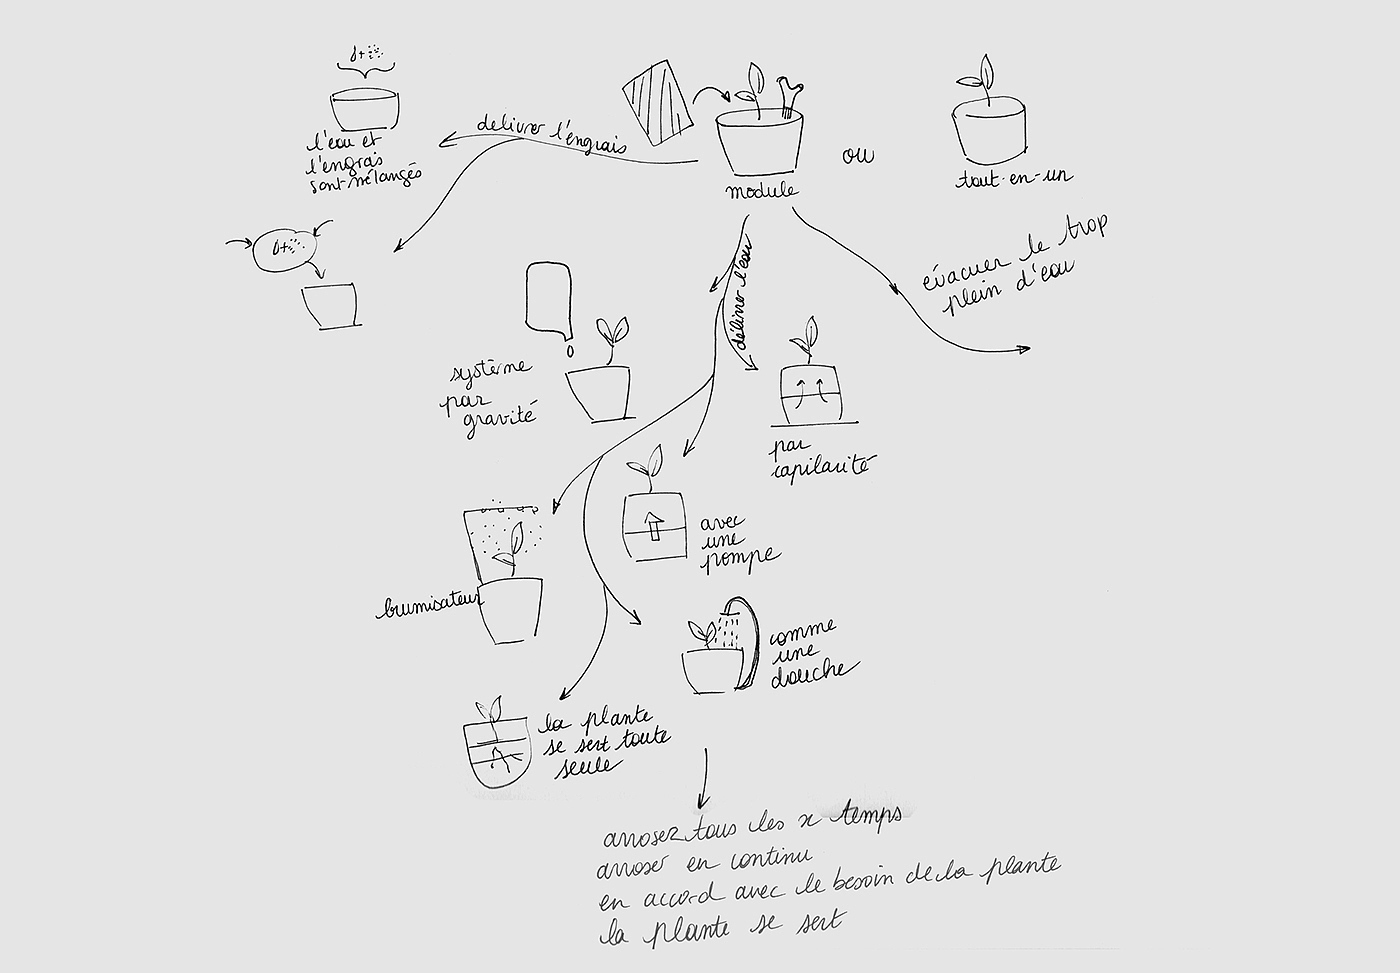 délivrer l'engrais
l'eau et
l'engrais
sont mélangés
module
ou
tout-en-un
évacuer le trop
plein d'eau
délivrer l'eau
système
par
gravité
par
capilarité
avec
une
pompe
brumisateur
comme
une
douche
la plante
se sert toute
seule
arrosez tous les x temps
arroser en continu
en accord avec le besoin de la plante
la plante se sert